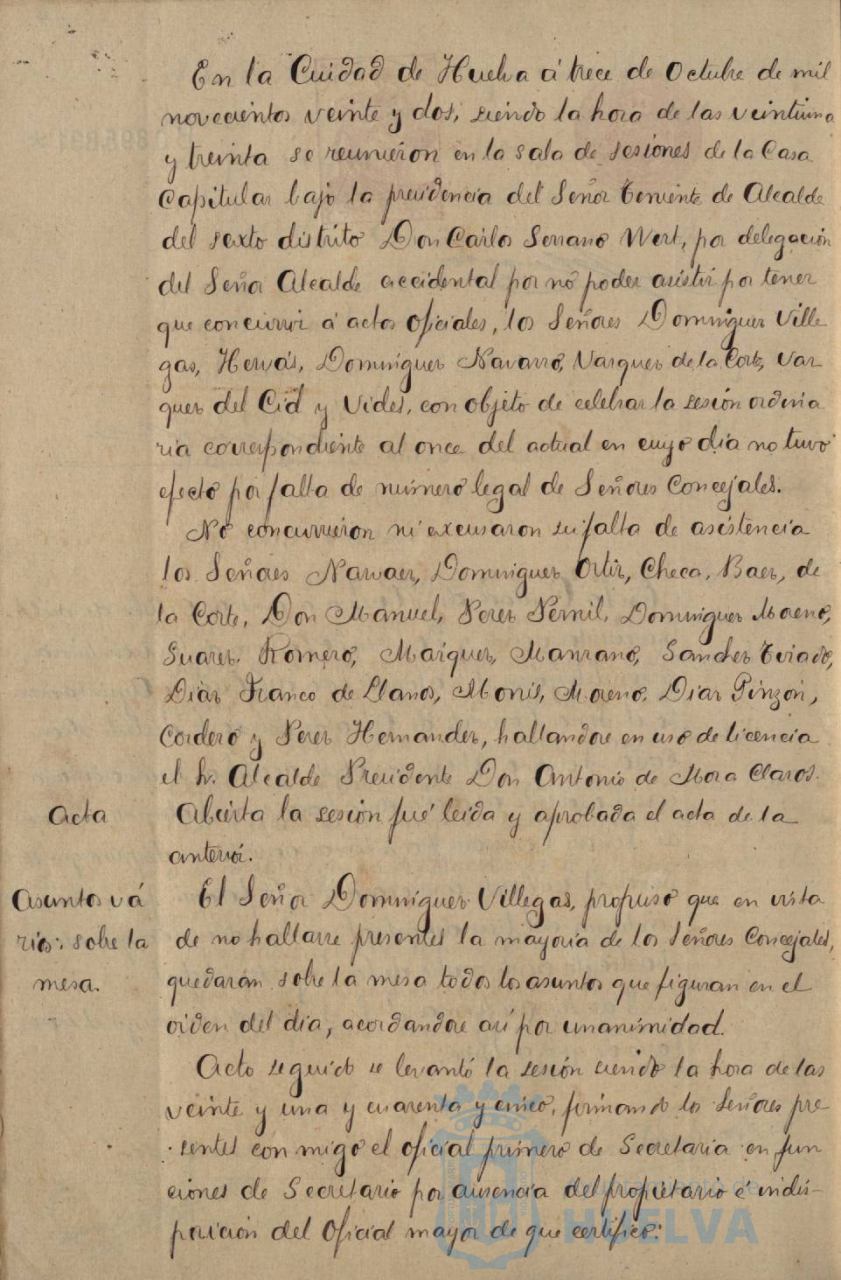 En la Cuidad de Huelva á trece de Octubre de mil
novecientos veinte y dos, siendo la hora de las veintiuna
y treinta se reunieron en la sala de sesiones de la Casa
Capitular bajo la presidencia del Señor Teniente de Alcalde
del sexto distrito Don Carlos Serrano Wert, por delegación
del Señor Alcalde accidental por no poder asistir por tener
que concurrir á actos oficiales, los Señores Dominguez Ville
gas, Hervás, Dominguez Navarro, Vazquez de la Corte, Vaz
quez del Cid y Vides, con objeto de celebrar la sesión ordina
ria correspondiente al once del actual en cuyo día no tuvo
efecto por falta de número legal de Señores Concejales.
No concurrieron ni excusaron su falta de asistencia
los Señores Narvaez, Dominguez Ortiz, Checa, Baez, de
la Corte, Don Manuel, Perez Pernil, Dominguez Moreno,
Suarez Romero, Marquez, Manzano, Sanchez Tviado,
Diaz Franco de Llanos, Monís, Moreno, Diaz Pinzón,
Cordero y Perez Hernandez, hallandose en uso de licencia
el Sr. Alcalde Presidente Don Antonio de Mora Claros.
Acta
Abierta la sesión fué leida y aprobada el acta de la
anterior.
Asuntos vá
rios: sobre la
mesa.
El Señor Dominguez Villegas, propuso que en vista
de no hallarse presentes la mayoría de los Señores Concejales,
quedarán sobre la mesa todos los asuntos que figuran en el
orden del dia, acordandose así por unanimidad.
Acto seguido se levantó la sesión siendo la hora de las
veinte y una y cuarenta y cinco, firmando los Señores pre
sentes con migo el oficial primero de Secretaria en fun
ciones de Secretario por ausencia del propietario é indis-
posición del Oficial mayor de que certifico:
HUELVA